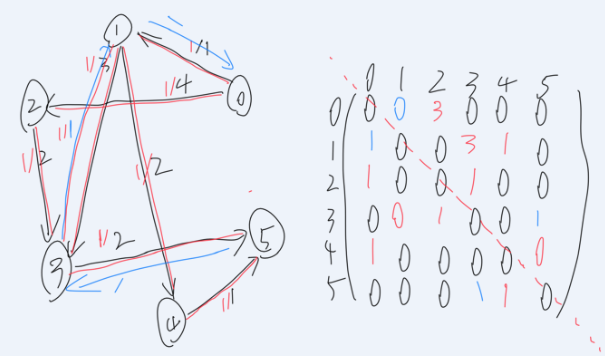 1
1/1
1/3
1/4
2
0
1/1
1/2
1/2
1/2
5
3
1
4
1/1
0 1 2 3 4 5
0 0 0 3 0 0 0
1 1 0 0 3 1 0
2 1 0 0 1 0 0
3 0 0 1 0 0 1
4 1 0 0 0 0 0
5 0 0 0 1 1 0